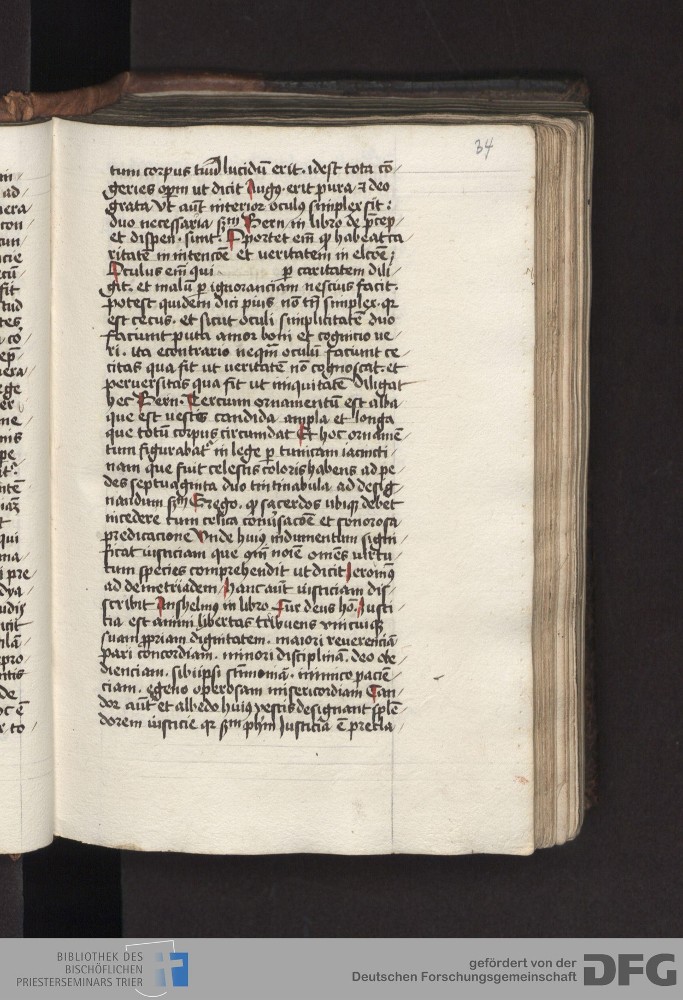 34
tum corpus tuū lucidū erit. idest tota cō/
geries opm̄ ut dicit Augꝰ. erit pura ⁊ deo
grata Vt aūt interior oculꝰ simplex sit :
duo necessaria sm̄ Bern in libro de p̄cep/
et dispen. sunt. Oportet em̄ ꝙ habeat ca
ritatē in intencōe et veritatem in elcōe ;
Oculus em̄ qui ꝑ caritatem dili/
git. et malū ꝑ ignoranciam nescius facit.
potest quidem dici pius nō tn̄ simplex. qꝛ
est cecus. et sicut oculi simplicitatē duo
faciunt puta amor boni et cognicio ve/
ri. ita econtrario neqm̄ oculū faciunt ce/
citas qua fit ut veritatē nō cognoscat. et
perversitas qua fit ut iniquitatē diligat
hec Bern. Tercium ornamentū est alba
que est vestis candida ampla et longa
que totū corpus circumdat Et hoc ornamē/
tum figurabatᷣ in lege ꝑ tunicam iacincti/
nam que fuit celestis coloris habens ad pe/
des septuaginta duo tintinabula ad desig/
nandum sm̄ Grego. ꝙ sacerdos ubiqꝫ debet
incedere cum celica conv̄sacōe et sonorosa
predicacione Unde huiꝰ indumentum signi/
ficat iusticiam que qm̄ noīe omēs virtu/
tum species comprehendit ut dicit Jeronimꝰ
ad demetriadem Hanc aūt iusticiam dis/
scribit Anshelmꝰ in libro Cur deus ho. Justi/
cia est animi libertas tribuens unicuiqꝫ
suam ꝓpriam dignitatem. maiori reverenciā
pari concordiam. minori disciplinā. deo obe/
dienciam. sibiipsi scīmoniā. inimico pacien/
ciam. egeno operosam misericordiam Can/
dor aūt et albedo huiꝰ vestis designant splē/
dorem iusticie qꝛ sm̄ phm̄ Justicia ē precla/
BIBLIOTHEK DES
BISCHÖFLICHEN
PRIESTERSEMINARS TRIER
gefördert von der
Deutschen Forschungsgemeinschaft
DFG